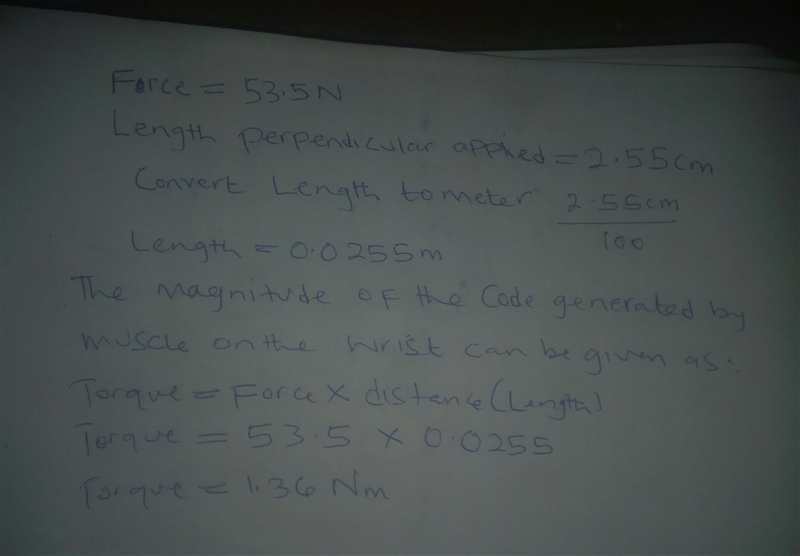 Force = 53.5N
Length perpendicular applied = 2.55cm
Convert Length to meter 2.55cm
100
Length = 0.0255m
The magnitude of the Code generated by
muscle on the wrist can be given as:
Torque = Force × distance (Length)
Torque = 53.5 × 0.0255
Torque = 1.36 Nm